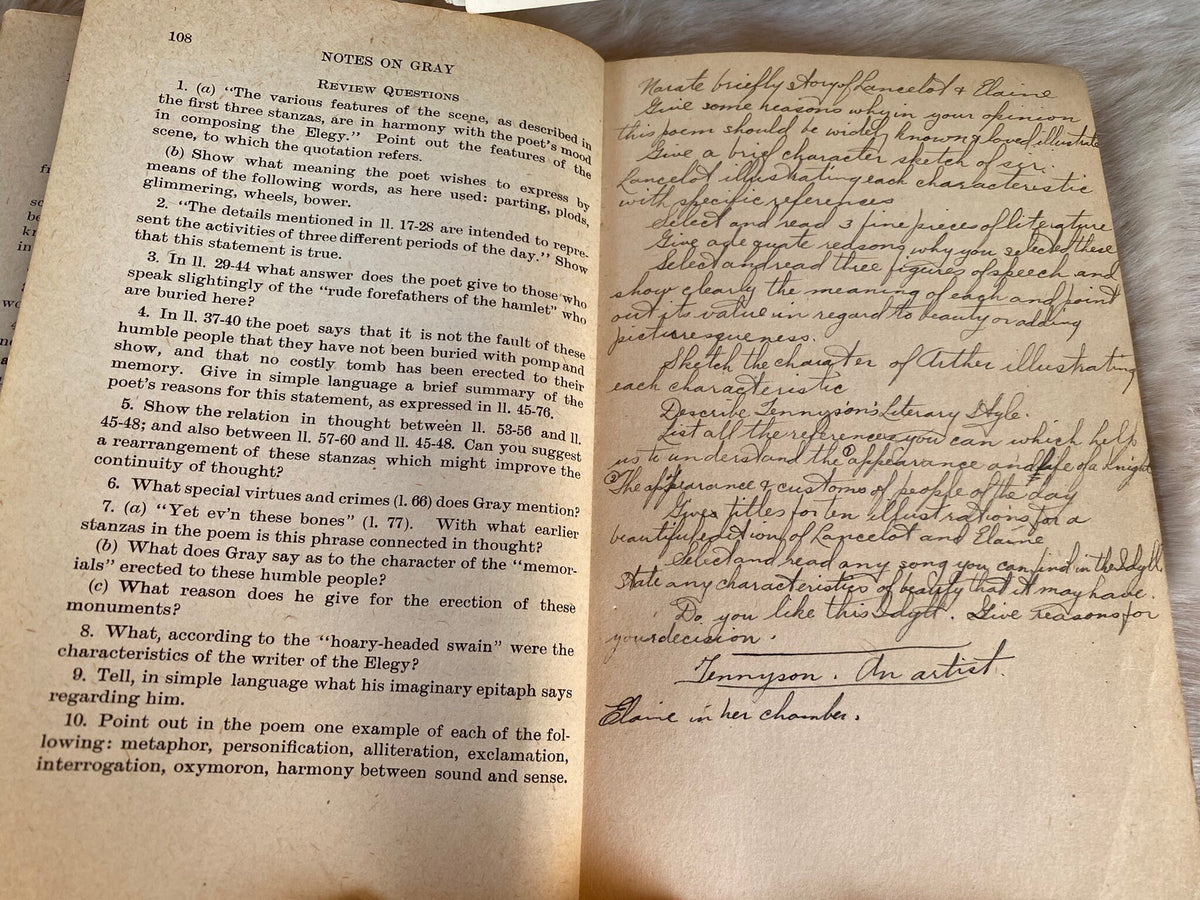 108
NOTES ON GRAY
REVIEW QUESTIONS
1. (a) "The various features of the scene, as described in
the first three stanzas, are in harmony with the poet's mood
in composing the Elegy." Point out the features of the
scene, to which the quotation refers.
(b) Show what meaning the poet wishes to express by
means of the following words, as here used: parting, plods,
glimmering, wheels, bower.
2. "The details mentioned in ll. 17-28 are intended to repre-
sent the activities of three different periods of the day." Show
that this statement is true.
3. In ll. 29-44 what answer does the poet give to those who
speak slightingly of the "rude forefathers of the hamlet" who
are buried here?
4. In ll. 37-40 the poet says that it is not the fault of these
humble people that they have not been buried with pomp and
show, and that no costly tomb has been erected to their
memory. Give in simple language a brief summary of the
poet's reasons for this statement, as expressed in ll. 45-76.
5. Show the relation in thought between ll. 53-56 and ll.
45-48; and also between ll. 57-60 and ll. 45-48. Can you suggest
a rearrangement of these stanzas which might improve the
continuity of thought?
6. What special virtues and crimes (l. 66) does Gray mention?
7. (a) "Yet ev'n these bones" (l. 77). With what earlier
stanzas in the poem is this phrase connected in thought?
(b) What does Gray say as to the character of the "memor-
ials" erected to these humble people?
(c) What reason does he give for the erection of these
monuments?
8. What, according to the "hoary-headed swain" were the
characteristics of the writer of the Elegy?
9. Tell, in simple language what his imaginary epitaph says
regarding him.
10. Point out in the poem one example of each of the fol-
lowing: metaphor, personification, alliteration, exclamation,
interrogation, oxymoron, harmony between sound and sense.
Narate briefly story of Lancelot & Elaine
Give some reasons why in your opinion
this poem should be widely known & loved illustrate
Give a brief character sketch of sir.
Lancelot illustrating each characteristic
with specific references
Select and read 3 fine pieces of literature
Give adequate reasons why you selected these
Select and read three figures of speech and
show clearly the meaning of each and point
out its value in regard to beauty or adding
picturesqueness.
Sketch the character of Arther illustrating
each characteristic
Describe Tennyson's Literary Style.
List all the references you can which help
us to understand the ① appearance and life of a Knight
② The appearance & customs of people of the day
Give titles for ten illustrations for a
beautiful edition of Lancelot and Elaine
Select and read any song you can find in the Idyll.
State any characteristics of beauty that it may have.
Do you like this Idyll. Give reasons for
your decision.
Tennyson. An artist.
Elaine in her chamber.